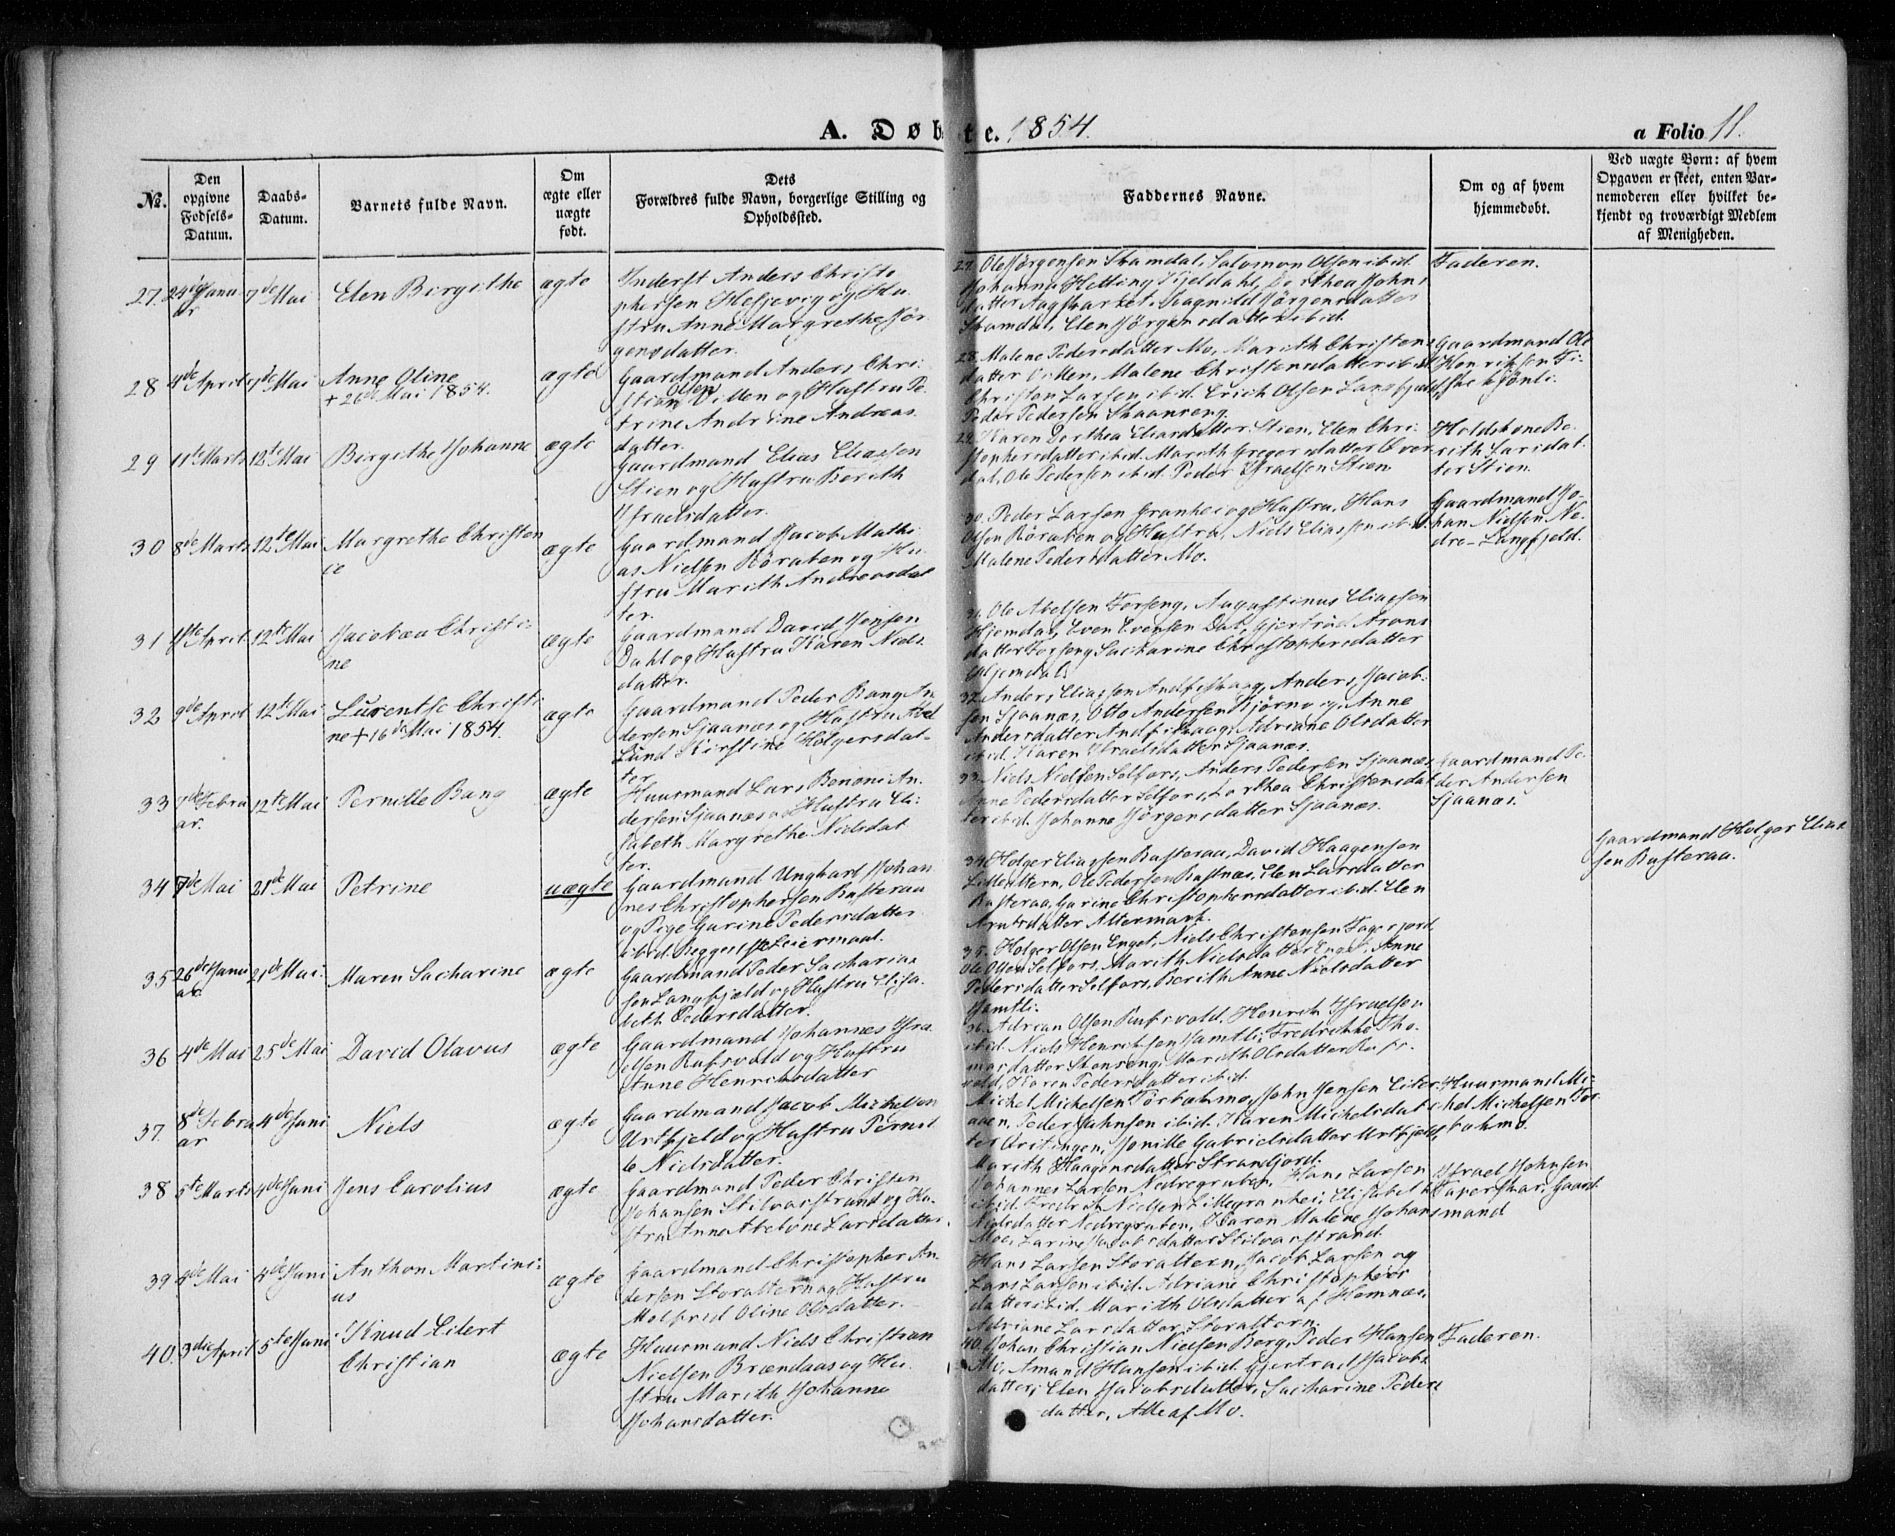 A. Døbte. 1854.
a Folio 11.
No.
Den opgivne Fødsels-Datum.
Daabs-Datum.
Barnets fulde Navn.
Om ægte eller uægte født.
Dets Forældres fulde Navn, borgerlige Stilling og Opholdssted.
Faddernes Navne.
Om og af hvem hjemmedøbt.
Ved uægte Børn: af hvem Opgaven er skeet, enten Barnemoderen eller hvilket bekjendt og troværdigt Medlem af Menigheden.
27. 24de Januar 7de Mai Elen Birgithe ægte
Inderst Anders Christo
phersen Hessjevig og Hu
stru Anne Margrethe Jør
gensdatter.
27. Ole Jørgensen Skamdal, Salomon Olsen ibid.
Johanna Hetting Dorthea Johns
datter Ragnild Jørgensdatter
Skamdal, Elen Jørgensdatter ibid.
Faderen.
28 4de April 7de Mai Anne Oline
+ 26de Mai 1854.
ægte
Gaardmand Anders Chri
stian Olsen Villen og Hustru Pe
trine Andrine Andreas
datter.
28. Malene Pedersdatter Mo, Marith Christens
datter Villen, Malene Christensdatter ibid.
Christen Larsen ibid. Erich Olsen Langfjeld,
Peder Pedersen Skaanseng.
Gaardmand Ole
Henriksen
29 11te Marts 12te Mai Birgithe Johanna ægte
Gaardmand Elias Eliassen
Stien og Hustru Berith
Israelsdatter.
29. Karen Dorthea Eliasdatter Stien, Elen Chri
stophersdatter ibid. Marith Gregersdatter Over
dal, Ole Pedersen ibid. Peder Israelsen Stien
Be
rith Larsdat
ter Stien.
30 8de Marts 12te Mai Margrethe Christen
ce
ægte
Gaardmand Jacob Mathi
as Nielsen Røraben og Hu
stru Marith Andreasdat
ter.
30. Peder Larsen Granhei og Hustru, Hans
Olsen Røraben og Hustru, Niels Eliassen ibid.
Malene Pedersdatter Mo.
Gaardmand Jo-
han Nielsen Ne-
dre-Langfjeld.
31 April 12te Mai Jacobæa Christi
ne
ægte
Gaardmand David Jensen
Dahl og Hustru Karen Niels
datter.
31. Ole Abelsen Forseng, Augustinus Eliassen
Hjemdal, Even Evensen Dal, Gjertrud Arons
datter Forseng Sacharine Christophersdatter
Hjemdal
32 9de April 12te Mai Laurentse Christi
ne + 16de Mai 1854.
ægte
Gaardmand Peder Bang An
dersen Sjaanæs og Hustru Abel
Lund Kirstine Holgersdat-
ter
32. Anders Eliassen Andfiskaag, Anders Jacob
sen Sjaanæs, Otto Andersen Anne
Andersdatter Andfiskaag, Adriane Olsdatter
ibid. Karen Israelsdatter Sjaanæs.
33 7de Februar. 12te Mai Pernille Bang ægte
Huusmand Lars Benoni An
dersen Sjaanæs og Hustru Eli
sabeth Margrethe Nielsdat
ter.
33. Niels Nielsen Selfors, Anders Pedersen Sjaanæs,
Anne Pedersdatter Selfors, Dorthea Christensdat
ter ibid. Johanne Jørgensdatter Sjaanæs.
Gaardmand Pe
der Andersen
Sjaanæs.
34 7de Mai 21de Mai Petrine uægte
Gaardmand Ungkarl Johan
nes Christophersen Basteraa
og Pige Garine Pedersdatter
ibid. Begges 1ste Leiermaal.
34. Holger Eliassen Basteraa, David Haagensen
Lilleattern, Ole Pedersen Basnæs, Elen Larsdatter
Basteraa, Garine Christophersdatter ibid. Elen
datter Altermark.
Gaardmand Holger Elias
sen Basteraa.
35 26de Januar 21de Mai Maren Sacharine ægte
Gaardmand Peder Sacharias
sen Langfjeld og Hustru Elisa
beth Pedersdatter.
35. Holger Olsen Enget, Niels Christensen
Ole Olsen Selfors, Marith Nielsdatter Enget, Anne
Pedersdatter Selfors, Berith Anne Nielsdatter
36 4de Mai 25de Mai David Olavus ægte
Gaardmand Johannes Isra
elsen Rufsvold og Hustru
Anne Henriksdatter
36. Adrian Olsen Rufsvold, Henrik Israelsen
ibid. Niels Henriksen Fredrikke Tho
masdatter Marith Olsdatter Rufs
vold, Karen Pedersdatter ibid.
37. 8de Februar 4de Juni Niels ægte
Gaardmand Jacob Michelsen
Urtfjeld og Hustru Pernil
le Nielsdatter.
Michel Michelsen John Jensen
Peder Johnsen ibid. Karen Michelsdat
ter Jonille Gabrielsdatter Urtfjeld,
Marith Haagensdatter Strandjord.
Huusmand Mi
chel Michelsen
38 5te Marts 4de Juni Jens Carolius ægte
Gaardmand Peder Christen
Johansen Stilvasstrand og Hu
stru Anna Abelone Larsdatter.
Johannes Larsen Nedregruben, Hans Larsen
ibid. Fredrik Nielsen Lillegranhei, Elisabeth
Nielsdatter Nedregruben, Karen Malene Johans
Moe, Larine Jacobsdatter Stilvasstrand.
Israel Johnsen
Gaard
mand
39 4de Mai 4de Juni Anthon Martini
us
ægte
Gaardmand Christopher An
dersen Storaltern og Hustru
Molfrid Oline Olsdatter.
Hans Larsen Storaltern, Jacob Larsen og
Lars Larsen ibid. Adriane Christophers
datter ibid. Marith Olsdatter af Hemnæs,
Adriane Larsdatter Storaltern.
40. 3die April 5te Juni Knud Eilert
Christian
ægte
Huusmand Niels Christian
Nielsen Brændaas og Hu
stru Marith Johanna
Johansdatter.
40. Johan Christian Nielsen Berg, Peder Hansen
Mo, Amund Hansen ibid. Gjertrud Jacobs
datter, Elen Jacobsdatter, Sacharine Peders
datter, Alle af Mo.
Faderen.